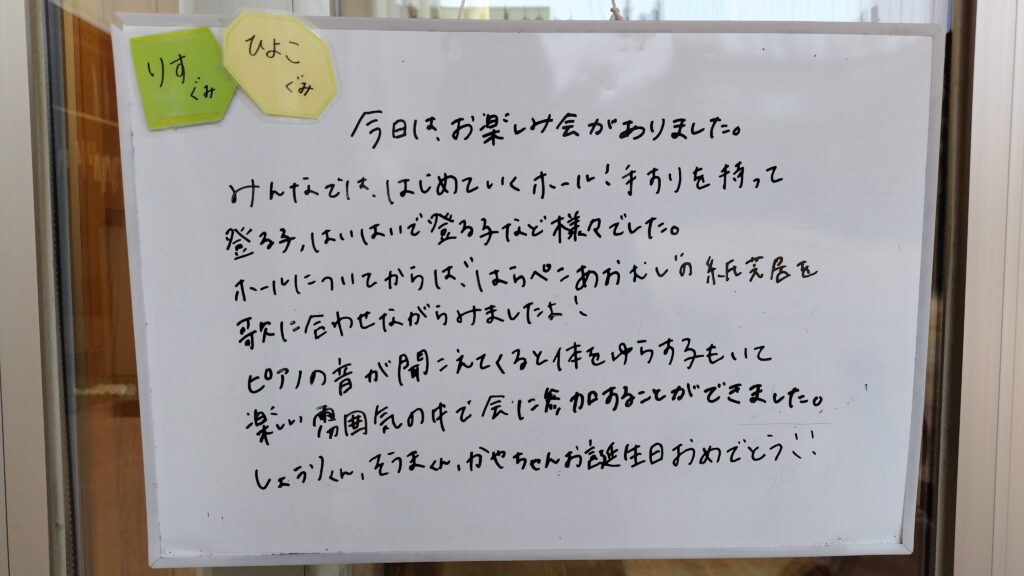 りす
ぐみ
ひよこ
ぐみ
今日は、お楽しみ会がありました。
みんなでは、はじめていくホール!手すりを持って
登る子、はいはいで登る子など様々でした。
ホールについてからは、"はらペこあおむし"の紙芝居を
歌に合わせながらみましたよ!
ピアノの音が聞こえてくると体をゆらす子もいて
楽しい雰囲気の中で会に参加することができました。
しょうりくん、そうまくん、かやちゃんお誕生日おめでとう!!